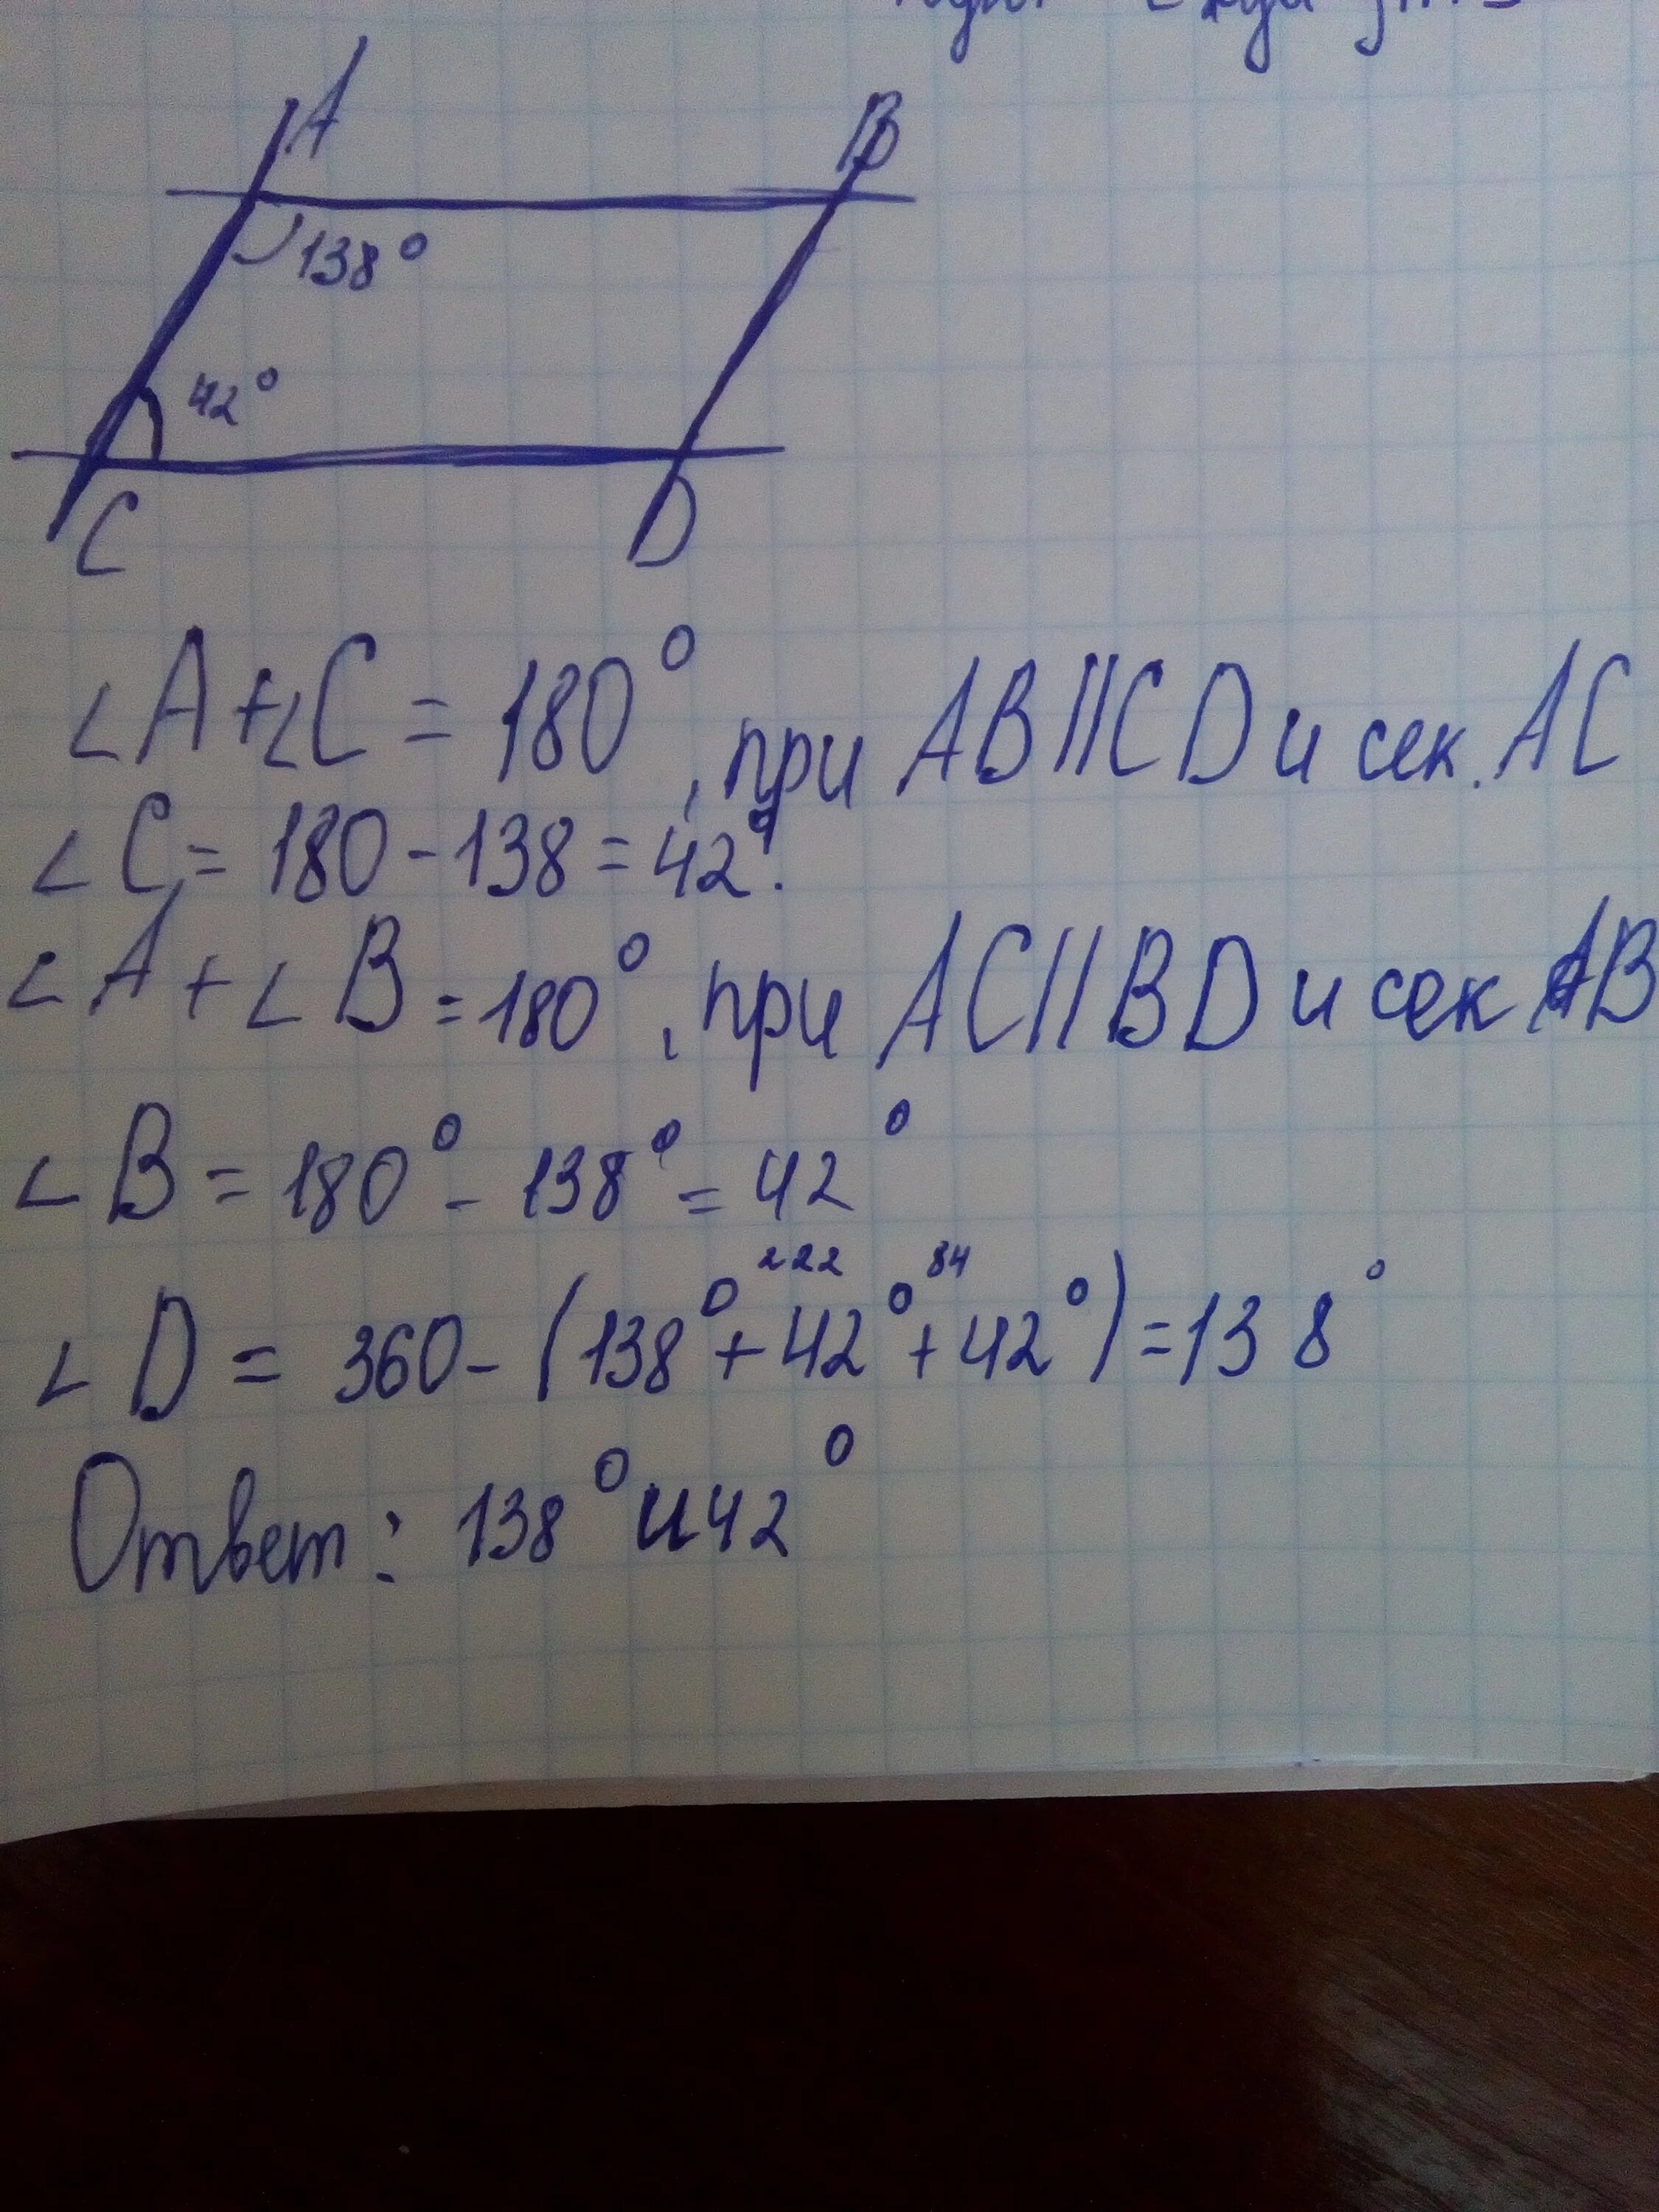 A
B
138°
42°
C
D
∠A+∠C = 180°, при AB∥CD и сек. AC
∠C = 180-138=42°.
∠A+∠B=180°, при AC∥BD и сек AB
∠B = 180° - 138° = 42°
222 84
∠D = 360-(138°+42°+42°)=138°
Ответ: 138° и 42°